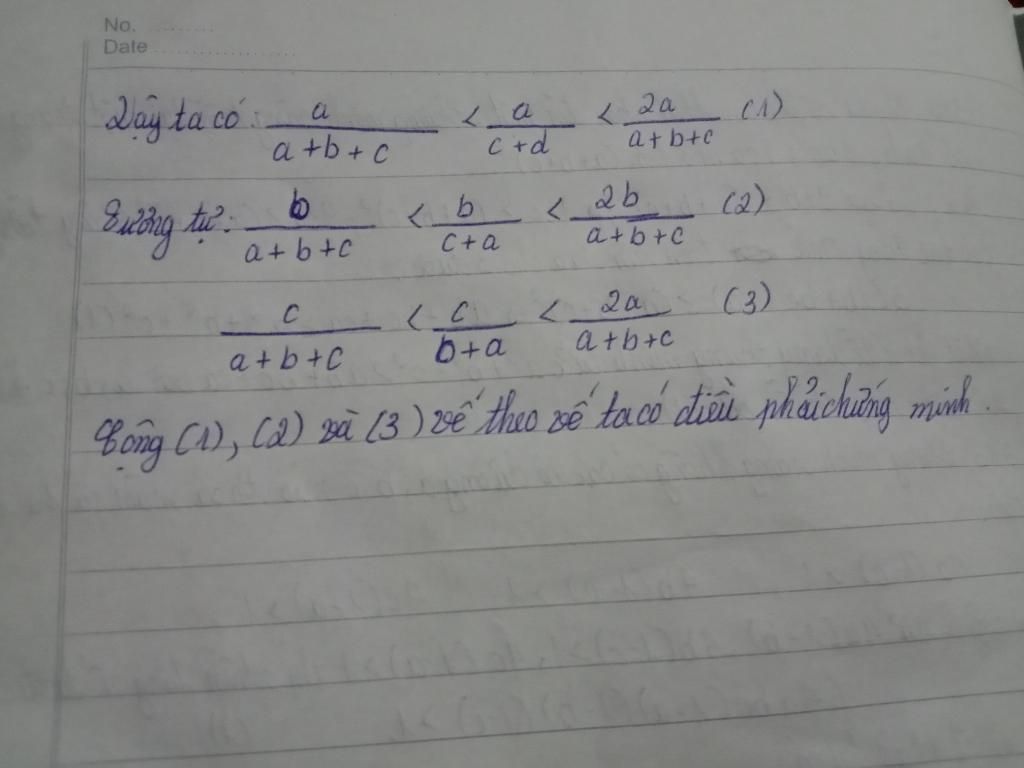 No. ............
Date ........................
Vậy ta có: a/(a+b+c) < a/(c+d) < 2a/(a+b+c) (1)
Tương tự: b/(a+b+c) < b/(c+a) < 2b/(a+b+c) (2)
c/(a+b+c) < c/(b+a) < 2a/(a+b+c) (3)
Cộng (1), (2) và (3) vế theo vế ta có điều phải chứng minh.